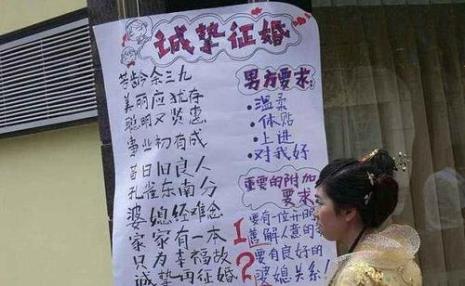 诚挚征婚
芳龄今余三九
美丽应犹存
聪明又贤惠
事业初有成
昔日旧良人
孔雀东南分
婆媳经难念
家家有一本
只为幸福故
诚挚再征婚
男方要求:
·温柔
·体贴
·上进
·对我好
重要的附加
要求:
1要有一位开明
善解人意的
2要有良好的
婆媳关系!